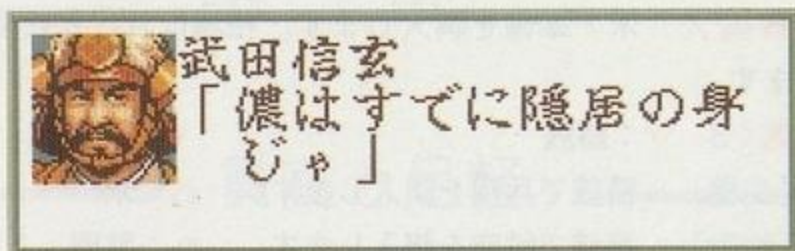 武田信玄
「儂はすでに隠居の身
じゃ」